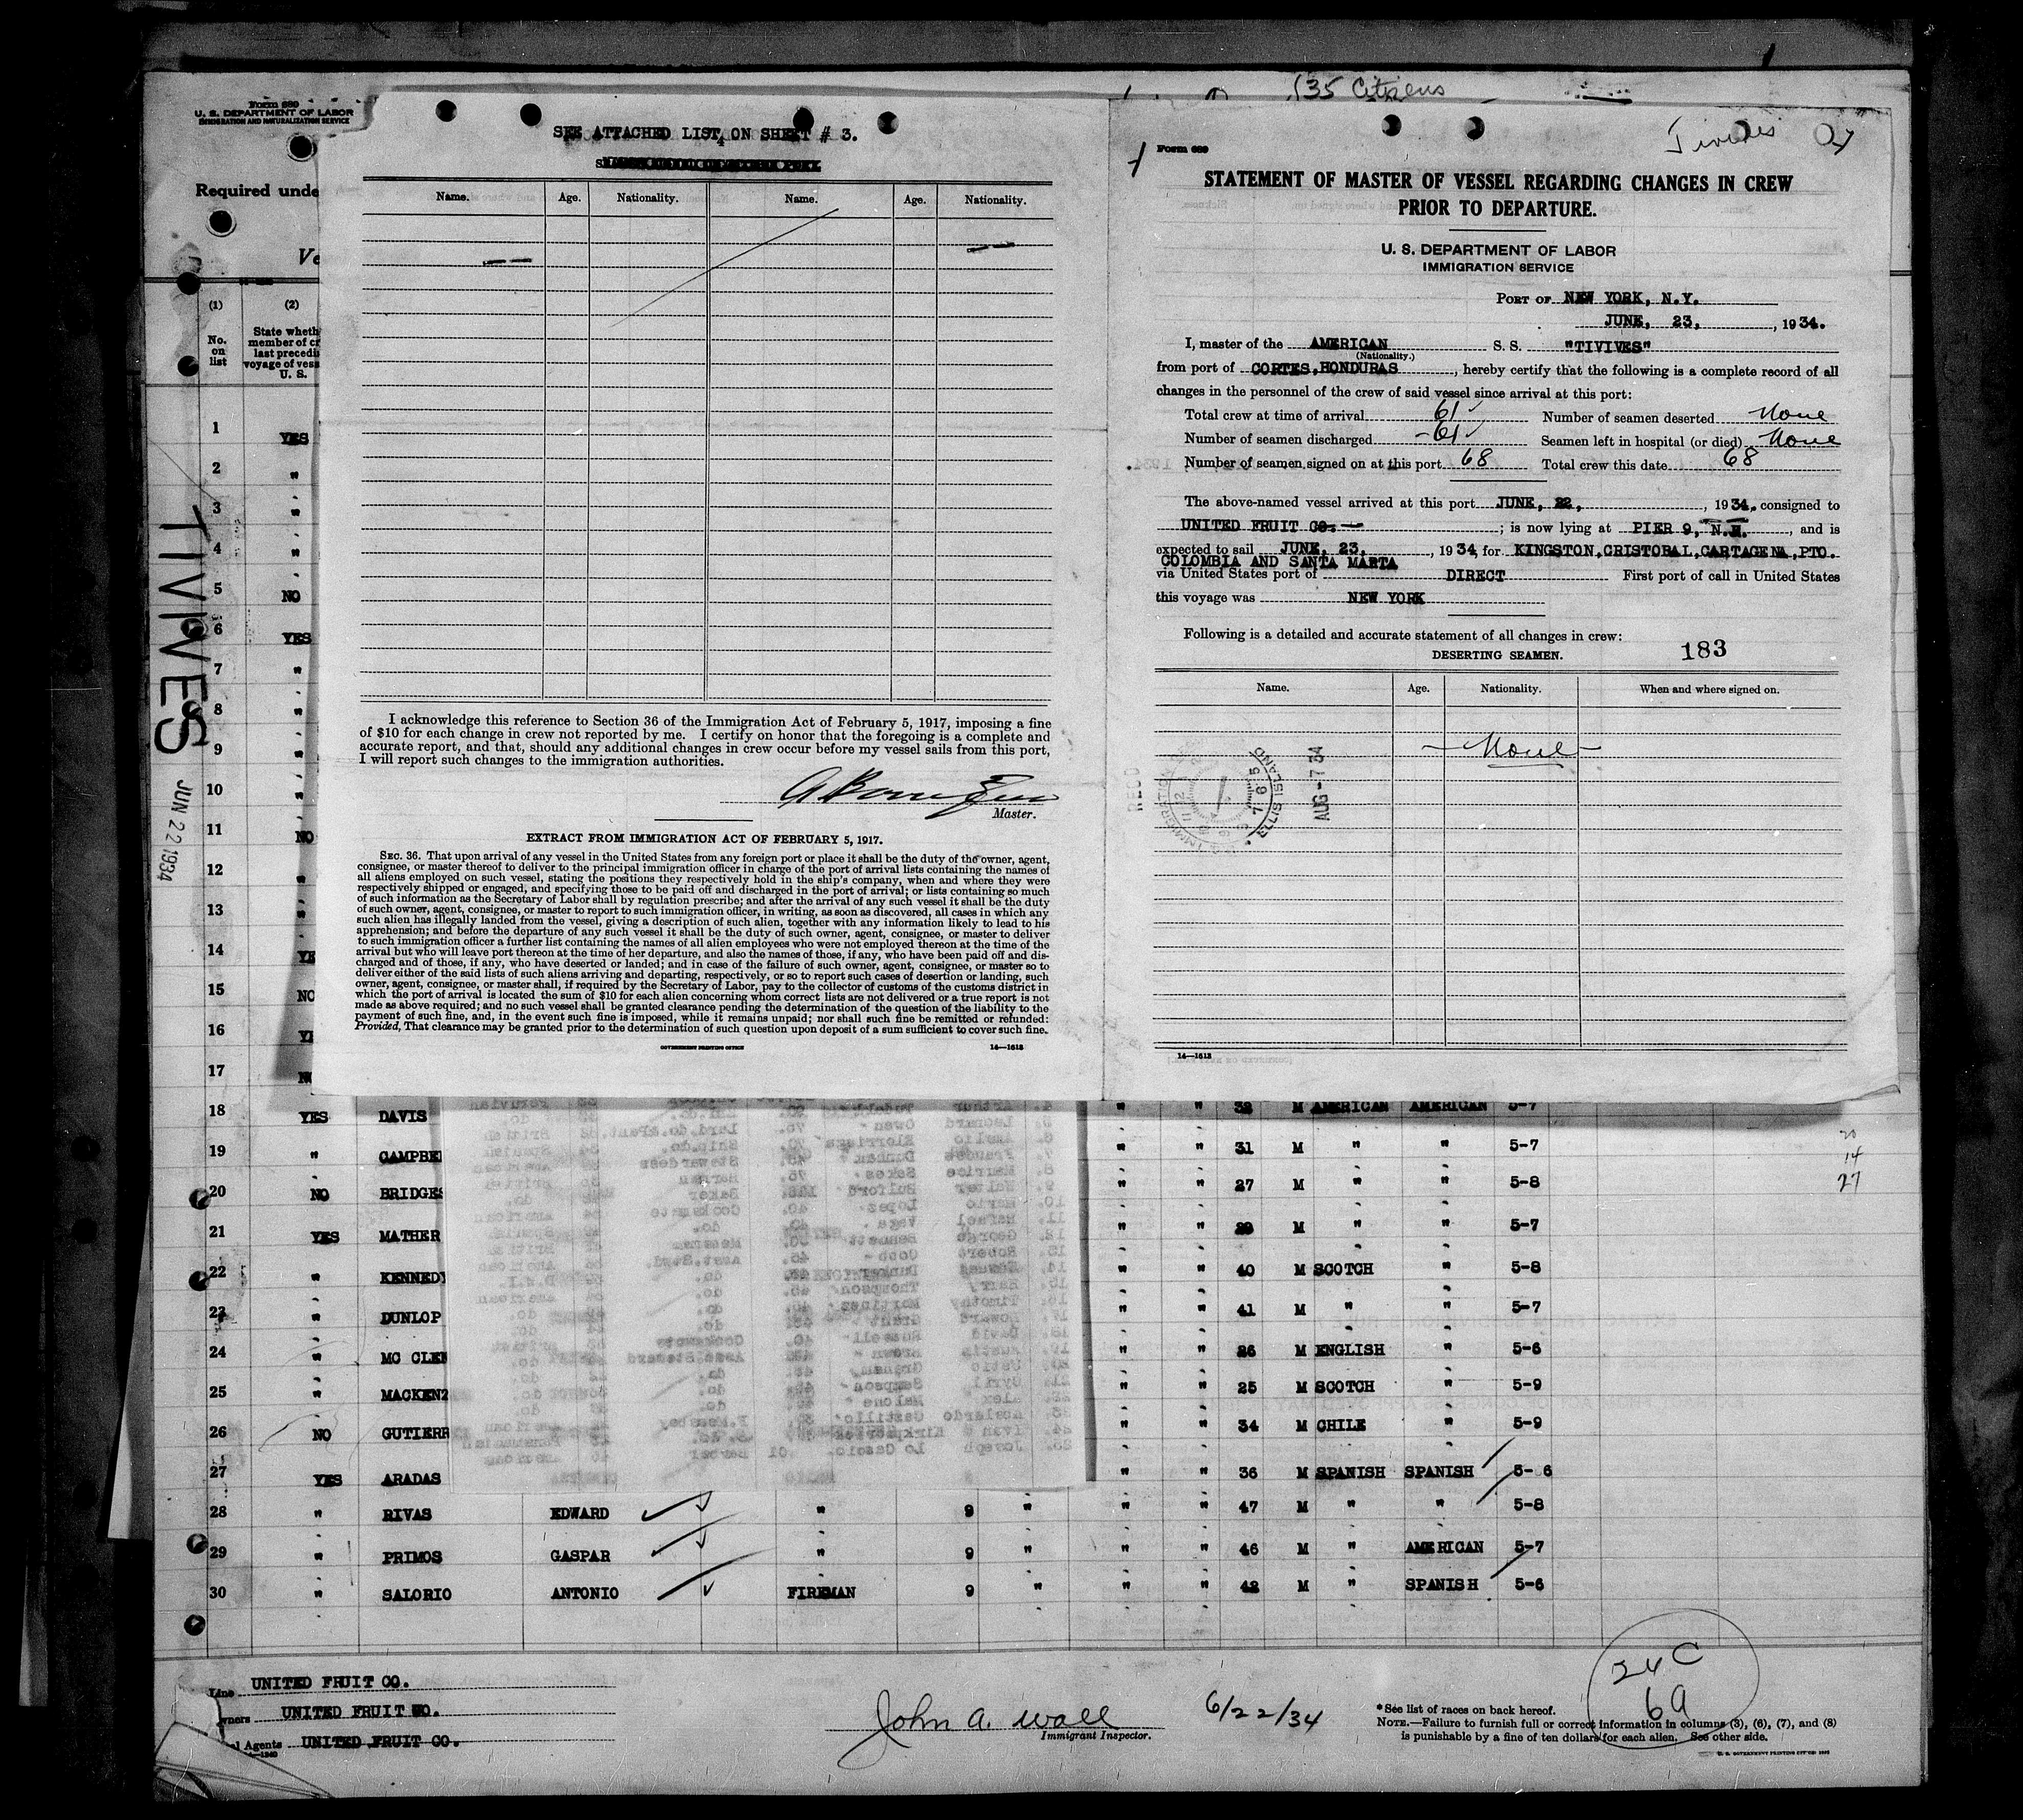 135 Citizens
Form 689
U. S. DEPARTMENT OF LABOR
IMMIGRATION AND NATURALIZATION SERVICE
Required unde
Ve
(1) (2)
No. on list
State wheth
member of cr
last precedi
voyage of vess
U. S.
TIVIVES
JUN 22 1934
1 YES
2 "
3 "
4 "
5 NO
6 YES
7 "
8 "
9 "
10 "
11 NO
12 "
13 "
14 YE
15 NO
16 YE
17 NO
SEE ATTACHED LIST ON SHEET # 3.
4
Name. Age. Nationality. Name. Age. Nationality.
I acknowledge this reference to Section 36 of the Immigration Act of February 5, 1917, imposing a fine
of $10 for each change in crew not reported by me. I certify on honor that the foregoing is a complete and
accurate report, and that, should any additional changes in crew occur before my vessel sails from this port,
I will report such changes to the immigration authorities.
Master.
EXTRACT FROM IMMIGRATION ACT OF FEBRUARY 5, 1917.
SEC. 36. That upon arrival of any vessel in the United States from any foreign port or place it shall be the duty of the owner, agent,
consignee, or master thereof to deliver to the principal immigration officer in charge of the port of arrival lists containing the names of
all aliens employed on such vessel, stating the positions they respectively hold in the ship's company, when and where they were
respectively shipped or engaged, and specifying those to be paid off and discharged in the port of arrival; or lists containing so much
of such information as the Secretary of Labor shall by regulation prescribe; and after the arrival of any such vessel it shall be the duty
of such owner, agent, consignee, or master to report to such immigration officer, in writing, as soon as discovered, all cases in which any
such alien has illegally landed from the vessel, giving a description of such alien, together with any information likely to lead to his
apprehension; and before the departure of any such vessel it shall be the duty of such owner, agent, consignee, or master to deliver
to such immigration officer a further list containing the names of all alien employees who were not employed thereon at the time of the
arrival but who will leave port thereon at the time of her departure, and also the names of those, if any, who have been paid off and dis-
charged and of those, if any, who have deserted or landed; and in case of the failure of such owner, agent, consignee, or master so to
deliver either of the said lists of such aliens arriving and departing, respectively, or so to report such cases of desertion or landing, such
owner, agent, consignee, or master shall, if required by the Secretary of Labor, pay to the collector of customs of the customs district in
which the port of arrival is located the sum of $10 for each alien concerning whom correct lists are not delivered or a true report is not
made as above required; and no such vessel shall be granted clearance pending the determination of the question of the liability to the
payment of such fine, and, in the event such fine is imposed, while it remains unpaid; nor shall such fine be remitted or refunded:
Provided, That clearance may be granted prior to the determination of such question upon deposit of a sum sufficient to cover such fine.
GOVERNMENT PRINTING OFFICE 14—1613
Tivives
Form 689
STATEMENT OF MASTER OF VESSEL REGARDING CHANGES IN CREW
PRIOR TO DEPARTURE.
U. S. DEPARTMENT OF LABOR
IMMIGRATION SERVICE
PORT OF NEW YORK, N.Y.
JUNE, 23, , 1934.
I, master of the AMERICAN S. S. "TIVIVES"
(Nationality.)
from port of CORTES, HONDURAS , hereby certify that the following is a complete record of all
changes in the personnel of the crew of said vessel since arrival at this port:
Total crew at time of arrival 61 Number of seamen deserted None
Number of seamen discharged -61 Seamen left in hospital (or died) None
Number of seamen signed on at this port 68 Total crew this date 68
The above-named vessel arrived at this port JUNE, 22, , 1934, consigned to
UNITED FRUIT CO. ; is now lying at PIER 9, N.R. , and is
expected to sail JUNE, 23, , 1934, for KINGSTON, CRISTOBAL, CARTAGENA, PTO.
COLOMBIA AND SANTA MARTA
via United States port of DIRECT First port of call in United States
this voyage was NEW YORK
Following is a detailed and accurate statement of all changes in crew:
DESERTING SEAMEN. 183
Name. Age. Nationality. When and where signed on.
- None -
REC'D
ELLIS ISLAND
AUG -7 34
14—1613
18 YES DAVIS " " 32 M AMERICAN AMERICAN 5-7
19 " CAMPBE " " 31 M " " 5-7
20 NO BRIDGES " " 27 M " " 5-8
21 YES MATHER " " 29 M " " 5-7
22 " KENNEDY " " 40 M SCOTCH " 5-8
23 " DUNLOP " " 41 M " " 5-7
24 " MC CLEN " " 26 M ENGLISH " 5-6
25 " MACKENZ " " 25 M SCOTCH " 5-9
26 NO GUTIERR " " 34 M CHILE " 5-9
27 YES ARADAS " " 36 M SPANISH SPANISH 5-6
28 " RIVAS EDWARD " 9 " " " 47 M " " 5-8
29 " PRIMOS GASPAR " 9 " " " 46 M " AMERICAN 5-7
30 " SALORIO ANTONIO FIREMAN 9 " " " 42 M " SPANISH 5-6
20
14
27
Line UNITED FRUIT CO.
wners UNITED FRUIT CO.
al Agents UNITED FRUIT CO.
John A. Wall
Immigrant Inspector.
6/22/34
24 C
6 a
* See list of races on back hereof.
NOTE.—Failure to furnish full or correct information in columns (3), (6), (7), and (8)
is punishable by a fine of ten dollars for each alien. See other side.